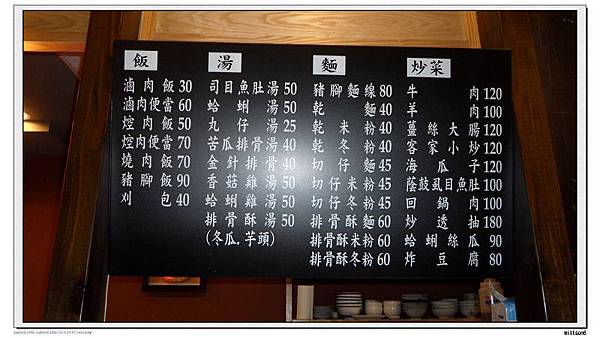 飯
滷肉飯 30
滷肉便當 60
焢肉飯 50
焢肉便當 70
燒肉飯 70
豬腳飯 90
刈包 40
湯
司目魚肚湯 50
蛤蜊湯 50
丸仔湯 25
苦瓜排骨湯 40
金針排骨 40
香菇雞湯 50
蛤蜊雞湯 50
排骨酥湯 50
(冬瓜.芋頭)
麵
豬腳麵線 80
乾麵 40
乾米粉 40
乾冬粉 40
切仔麵 45
切仔米粉 45
切仔冬粉 45
排骨酥麵 60
排骨酥米粉 60
排骨酥冬粉 60
炒菜
牛肉 120
羊肉 100
薑絲大腸 120
客家小炒 120
海瓜子 120
蔭鼓虱目魚肚 100
回鍋肉 100
炒透抽 180
蛤蜊絲瓜 90
炸豆腐 80
willsond